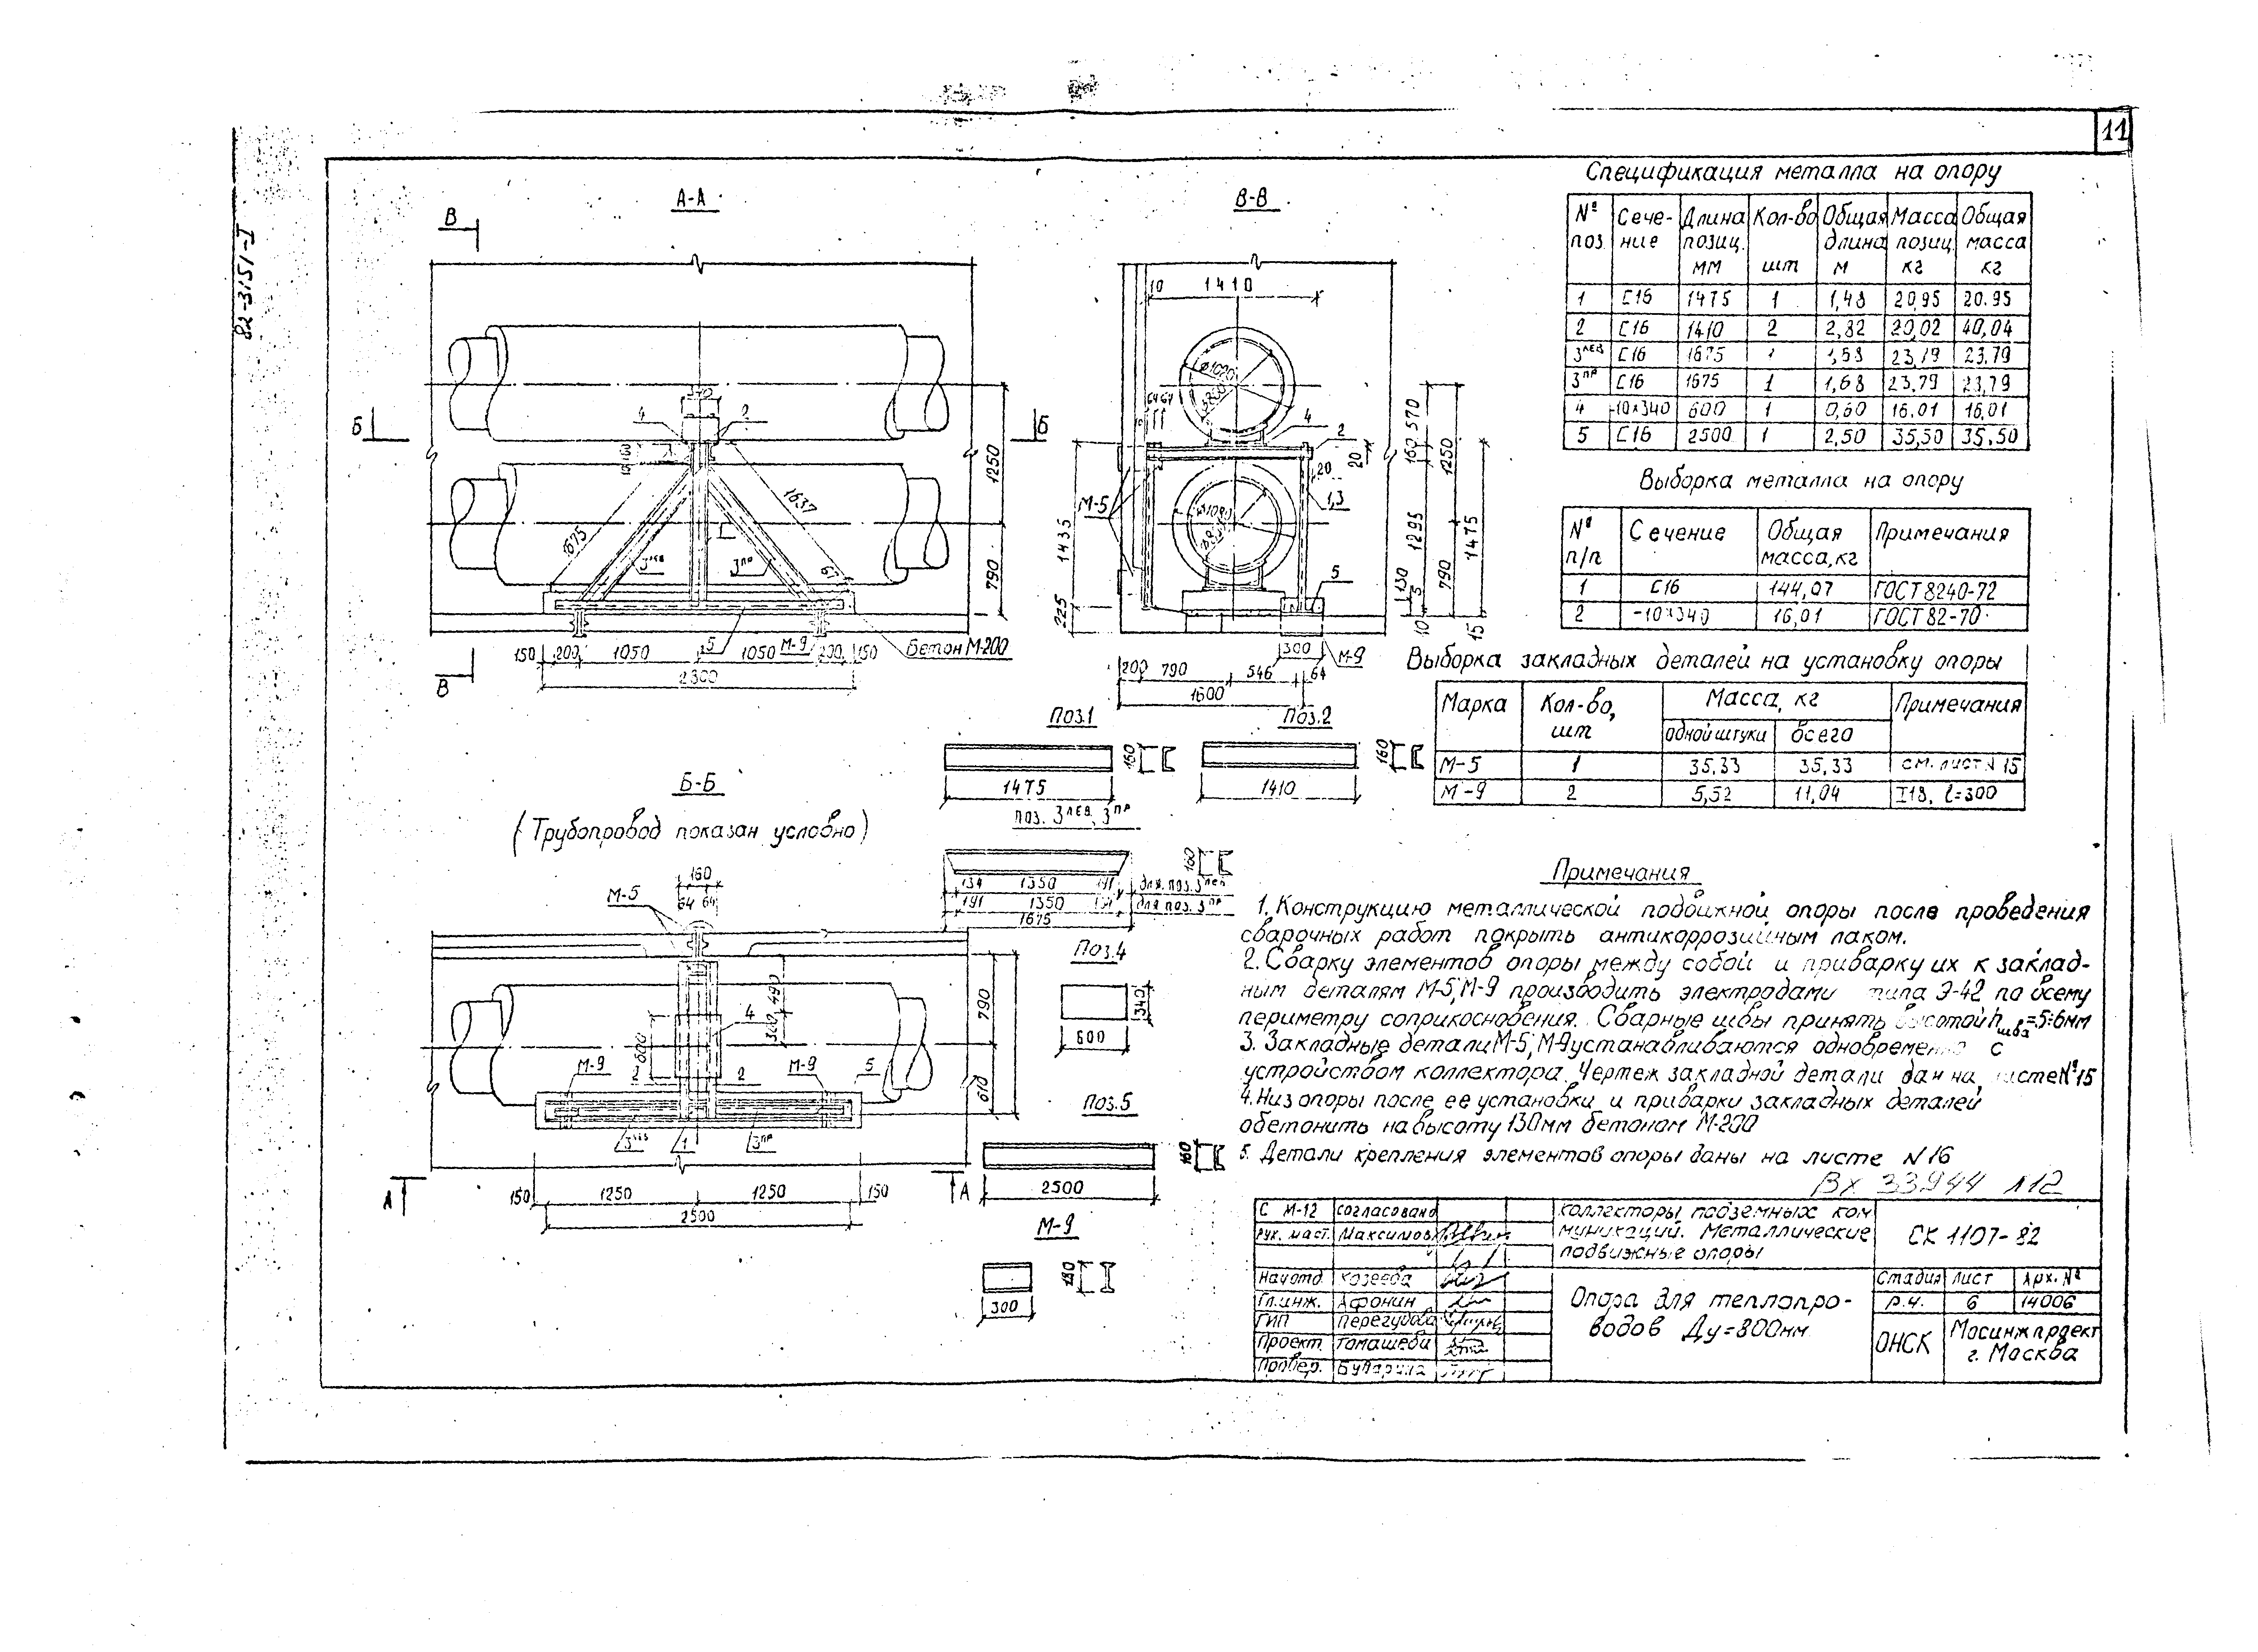 11
82-3151-I
А-А
В
Б
Б
В
4
2
1675
1637
3лев
1
3пр
67
1250
790
5
М-9
Бетон М-200
150
200
1050
1050
200
150
2300
В-В
10
1410
ø1020
64 64
4
2
20
20
1,3
М-5
ø1020
5
1435
225
570
160
1295
130
5
10
1250
790
1475
15
300
М-9
200
790
546
64
1600
Б-Б
(Трубопровод показан условно)
160
64 64
М-5
490
300
600
4
2
2
М-9
М-9
5
3лев
1
3пр
790
610
150
1250
1250
150
2500
А
А
Поз.1
1475
160
Поз.2
1410
160
поз. 3лев, 3пр
160
134 1350 191 для поз. 3лев
191 1350 134 для поз. 3пр
1675
Поз.4
340
600
Поз.5
160
2500
М-9
180
300
Спецификация металла на опору
№ поз. Сечение Длина позиц. мм Кол-во шт Общая длина м Масса позиц кг Общая масса кг
1 С16 1475 1 1,48 20,95 20.95
2 С16 1410 2 2,82 20,02 40,04
3лев С16 1675 1 1,68 23,79 23,79
3пр С16 1675 1 1,68 23,79 23,79
4 -10×340 600 1 0,60 16.01 16,01
5 С16 2500 1 2,50 35,50 35,50
Выборка металла на опору
№ п/п Сечение Общая масса, кг Примечания
1 С16 144,07 ГОСТ 8240-72
2 -10×340 16,01 ГОСТ 82-70
Выборка закладных деталей на установку опоры
Марка Кол-во, шт Масса, кг Примечания
одной штуки всего
М-5 1 35,33 35,33 см. лист № 15
М-9 2 5,52 11,04 I18, ℓ=300
Примечания
1. Конструкцию металлической подвижной опоры после проведения
сварочных работ покрыть антикоррозийным лаком.
2. Сварку элементов опоры между собой и приварку их к заклад-
ным деталям М-5, М-9 производить электродами типа Э-42 по всему
периметру соприкосновения. Сварные швы принять высотой hшва=5÷6мм
3. Закладные детали М-5, М-9 устанавливаются одновременно с
устройством коллектора. Чертеж закладной детали дан на листе №15
4. Низ опоры после ее установки и приварки закладных деталей
обетонить на высоту 130мм бетоном М-200
5. Детали крепления элементов опоры даны на листе N 16
Вх 33944 л12
С М-12 согласовано
Рук. маст. Максимов
Нач отд. Козеева
Гл.инж. Афонин
ГИП Перегудова
Проект. Томашева
Провер.
Коллекторы подземных ком
муникаций. Металлические
подвижные опоры
СК 1107-82
Опора для теплопро-
водов Ду=800мм
Стадия Лист Арх. №
Р.ч. 6 14006
ОНСК
Мосинжпроект
г. Москва